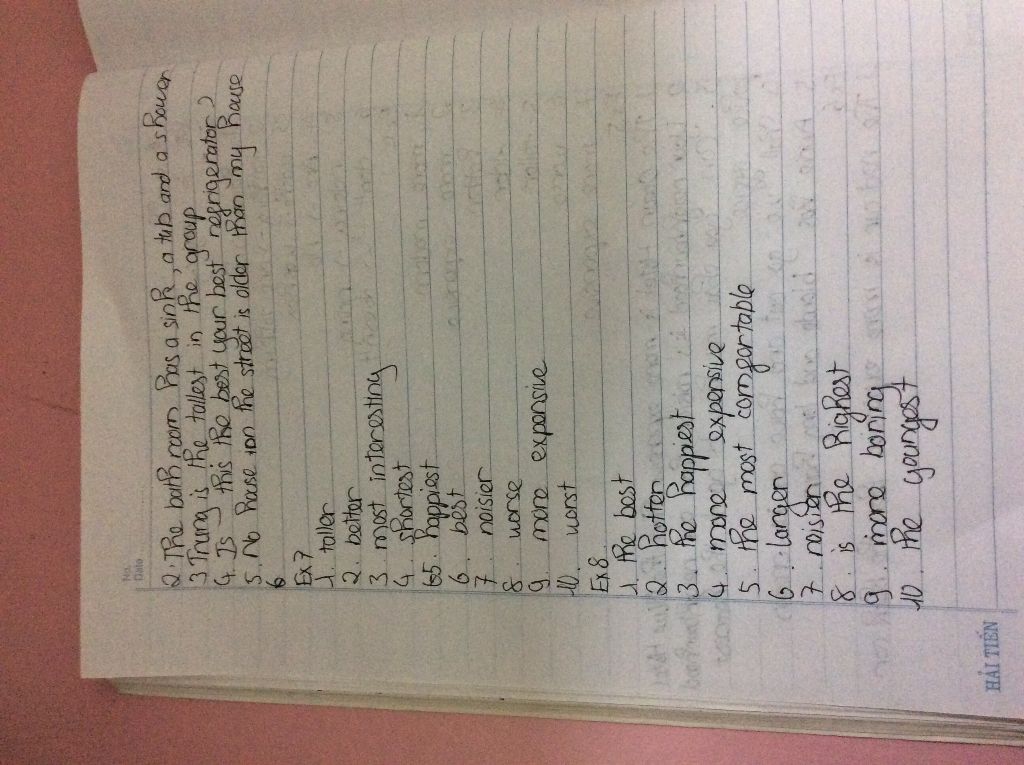 No.
Date
2. The bath room has a sink, a tub and a shower
3 Trung is the tallest in the group
4. Is this the best your best refrigerator?
5. No house in on the street is older than my house
6
Ex 7
1. taller
2. better
3. most interesting
4. shortest
5. happiest
6. best
7 noisier
8. worse
9. more expensive
10. worst
Ex 8.
1. the best
2 hotter
3. the happiest
4. more expensive
5. the most comfortable
6. larger
7. noisier
8. is the highest
9. more boring
10 the youngest
HẢI TIẾN